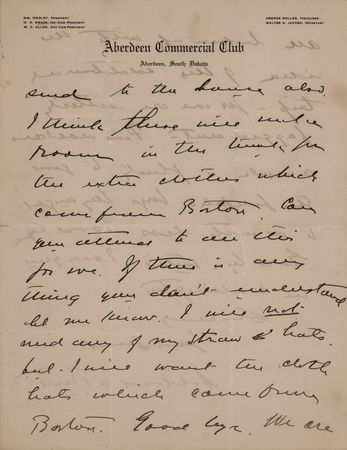 WM. OWSLEY, PRESIDENT
GEORGE BULLER, TREASURER
WALTER G. JACOBS, SECRETARY
Aberdeen Commercial Club
Aberdeen, South Dakota
send to the house also.
I think there will be
room in the trunk for
the extra clothes which
come from Boston. Can
you attend to all this
for me. If there is any
thing you don't understand
let me know. I will not
need any of my straw hats.
but I will want the cloth
hats which come from
Boston. Good bye. We are